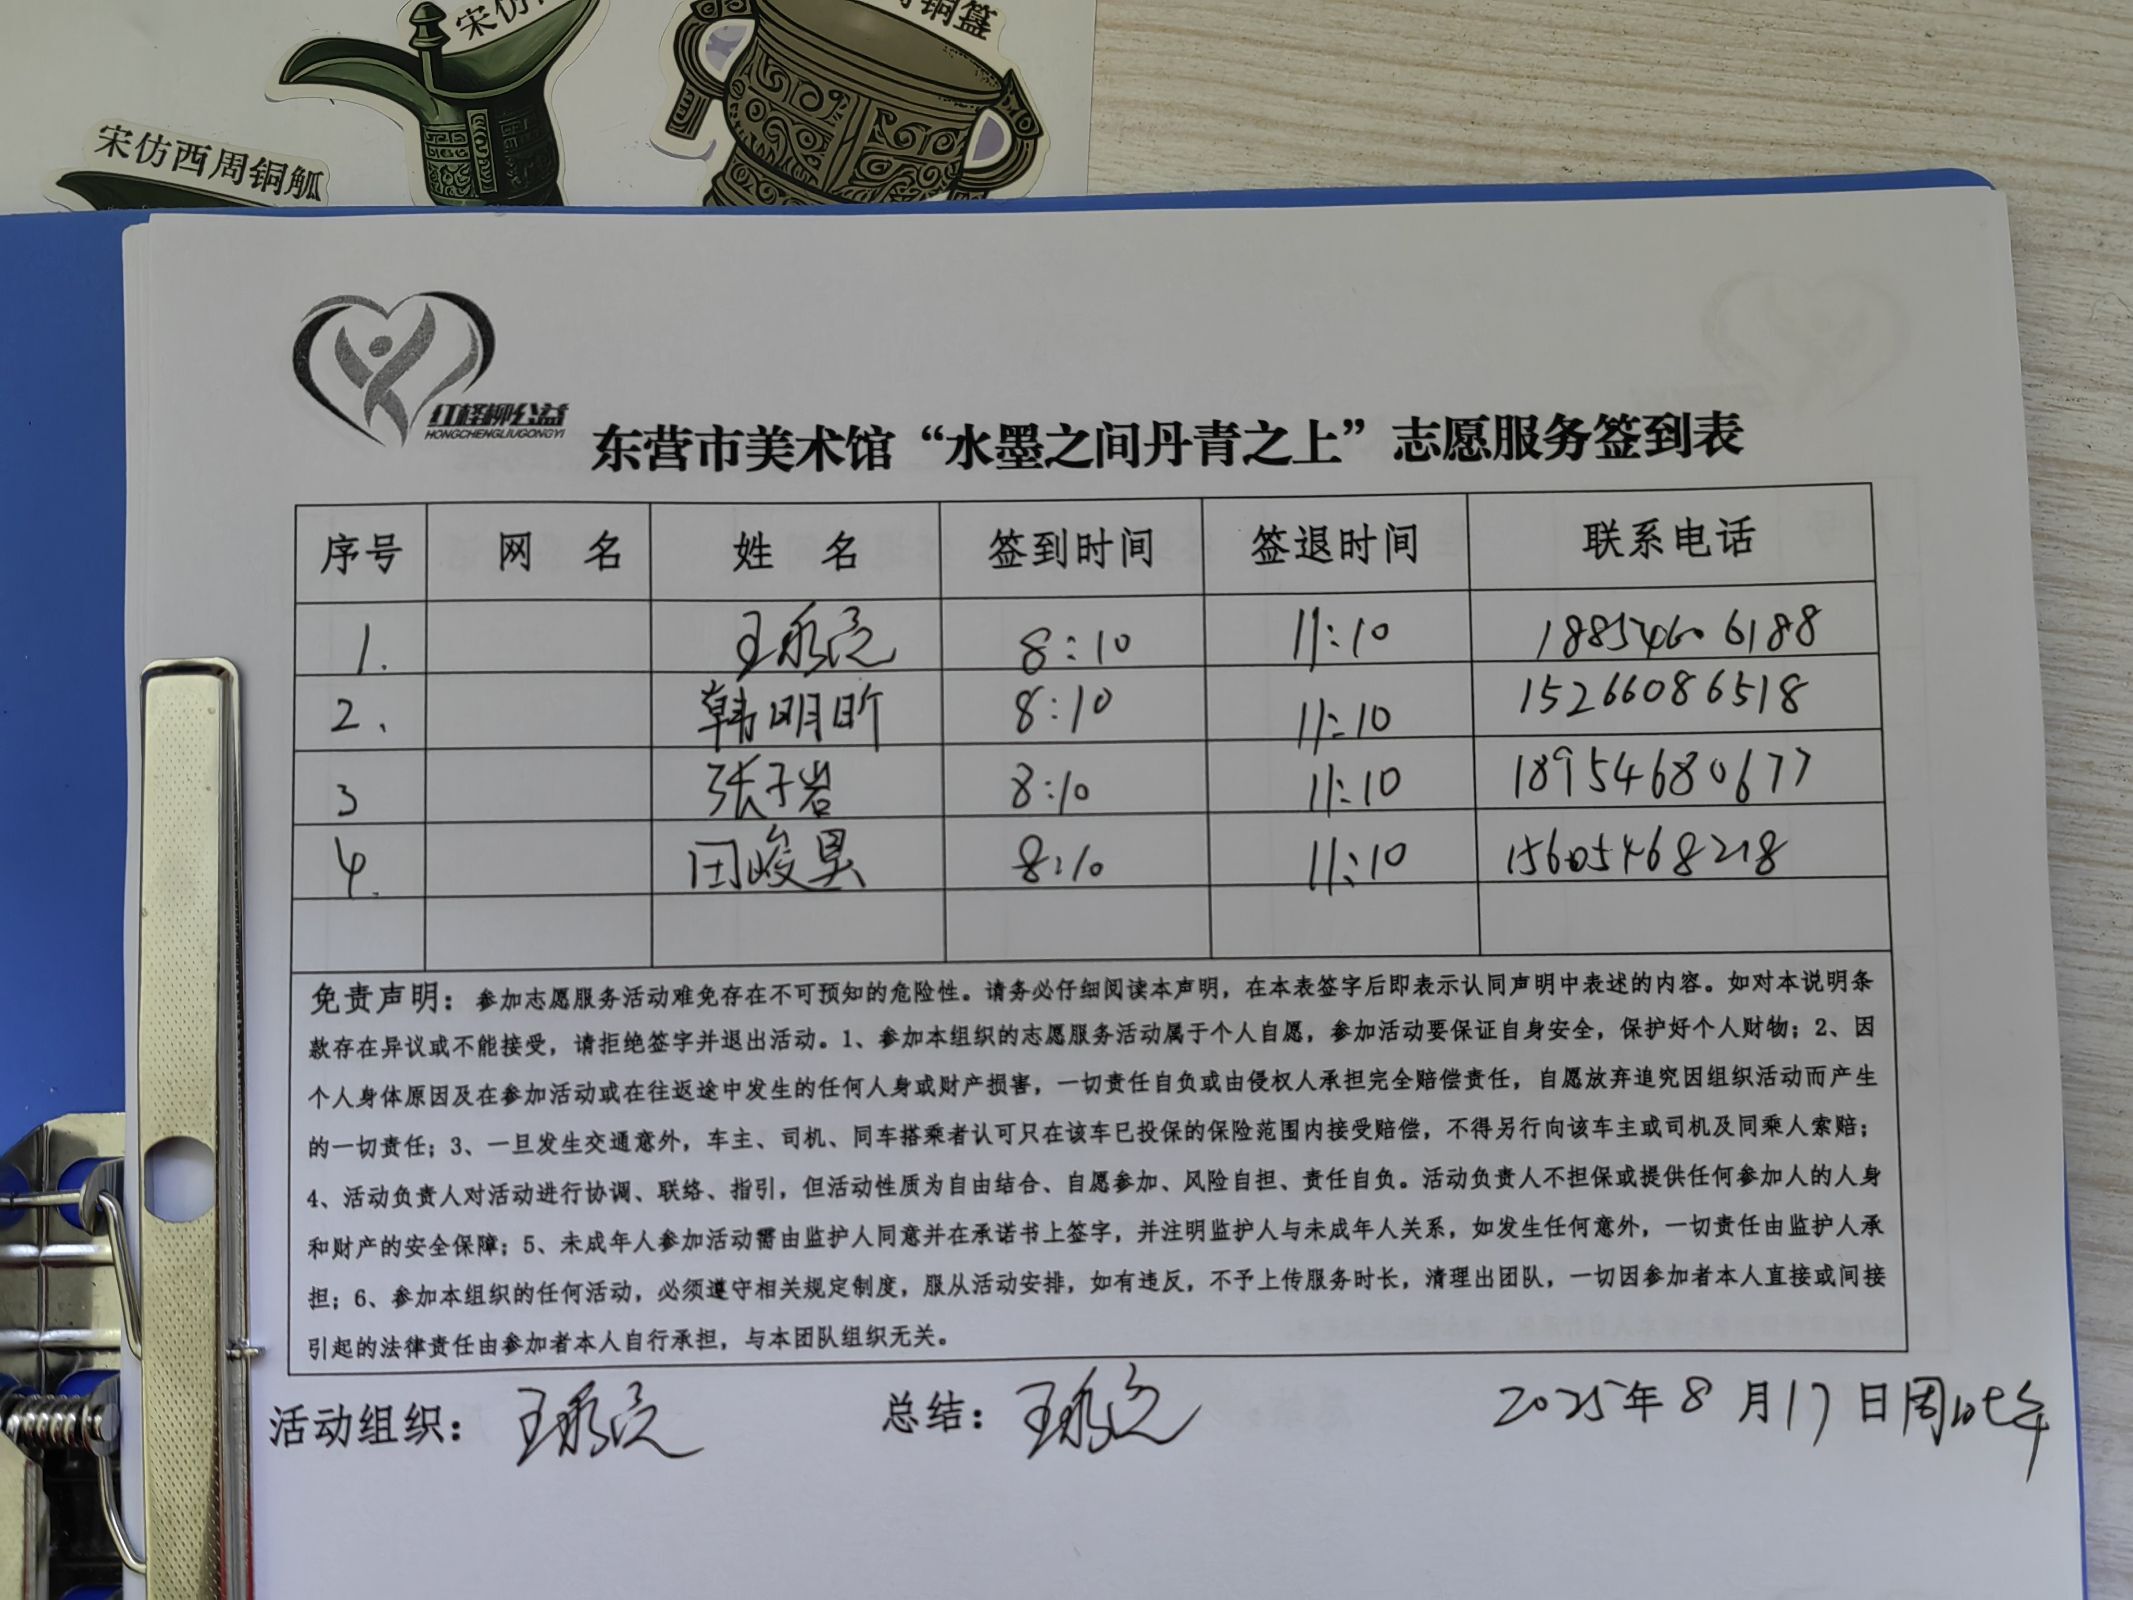 宋仿
铜簋
宋仿西周铜觚
红柽柳公益
HONGCHENGLIUGONGYI
东营市美术馆“水墨之间丹青之上”志愿服务签到表
序号 网 名 姓 名 签到时间 签退时间 联系电话
1. 王永亮 8:10 11:10 18854606188
2. 韩明昕 8:10 11:10 15266086518
3 张子岩 8:10 11:10 18954680677
4. 田峻昊 8:10 11:10 15605468218
免责声明：参加志愿服务活动难免存在不可预知的危险性。请务必仔细阅读本声明，在本表签字后即表示认同声明中表述的内容。如对本说明条
款存在异议或不能接受，请拒绝签字并退出活动。1、参加本组织的志愿服务活动属于个人自愿，参加活动要保证自身安全，保护好个人财物；2、因
个人身体原因及在参加活动或在往返途中发生的任何人身或财产损害，一切责任自负或由侵权人承担完全赔偿责任，自愿放弃追究因组织活动而产生
的一切责任；3、一旦发生交通意外，车主、司机、同车搭乘者认可只在该车已投保的保险范围内接受赔偿，不得另行向该车主或司机及同乘人索赔；
4、活动负责人对活动进行协调、联络、指引，但活动性质为自由结合、自愿参加、风险自担、责任自负。活动负责人不担保或提供任何参加人的人身
和财产的安全保障；5、未成年人参加活动需由监护人同意并在承诺书上签字，并注明监护人与未成年人关系，如发生任何意外，一切责任由监护人承
担；6、参加本组织的任何活动，必须遵守相关规定制度，服从活动安排，如有违反，不予上传服务时长，清理出团队，一切因参加者本人直接或间接
引起的法律责任由参加者本人自行承担，与本团队组织无关。
活动组织：王永亮 总结：王永亮 2025年8月17日周